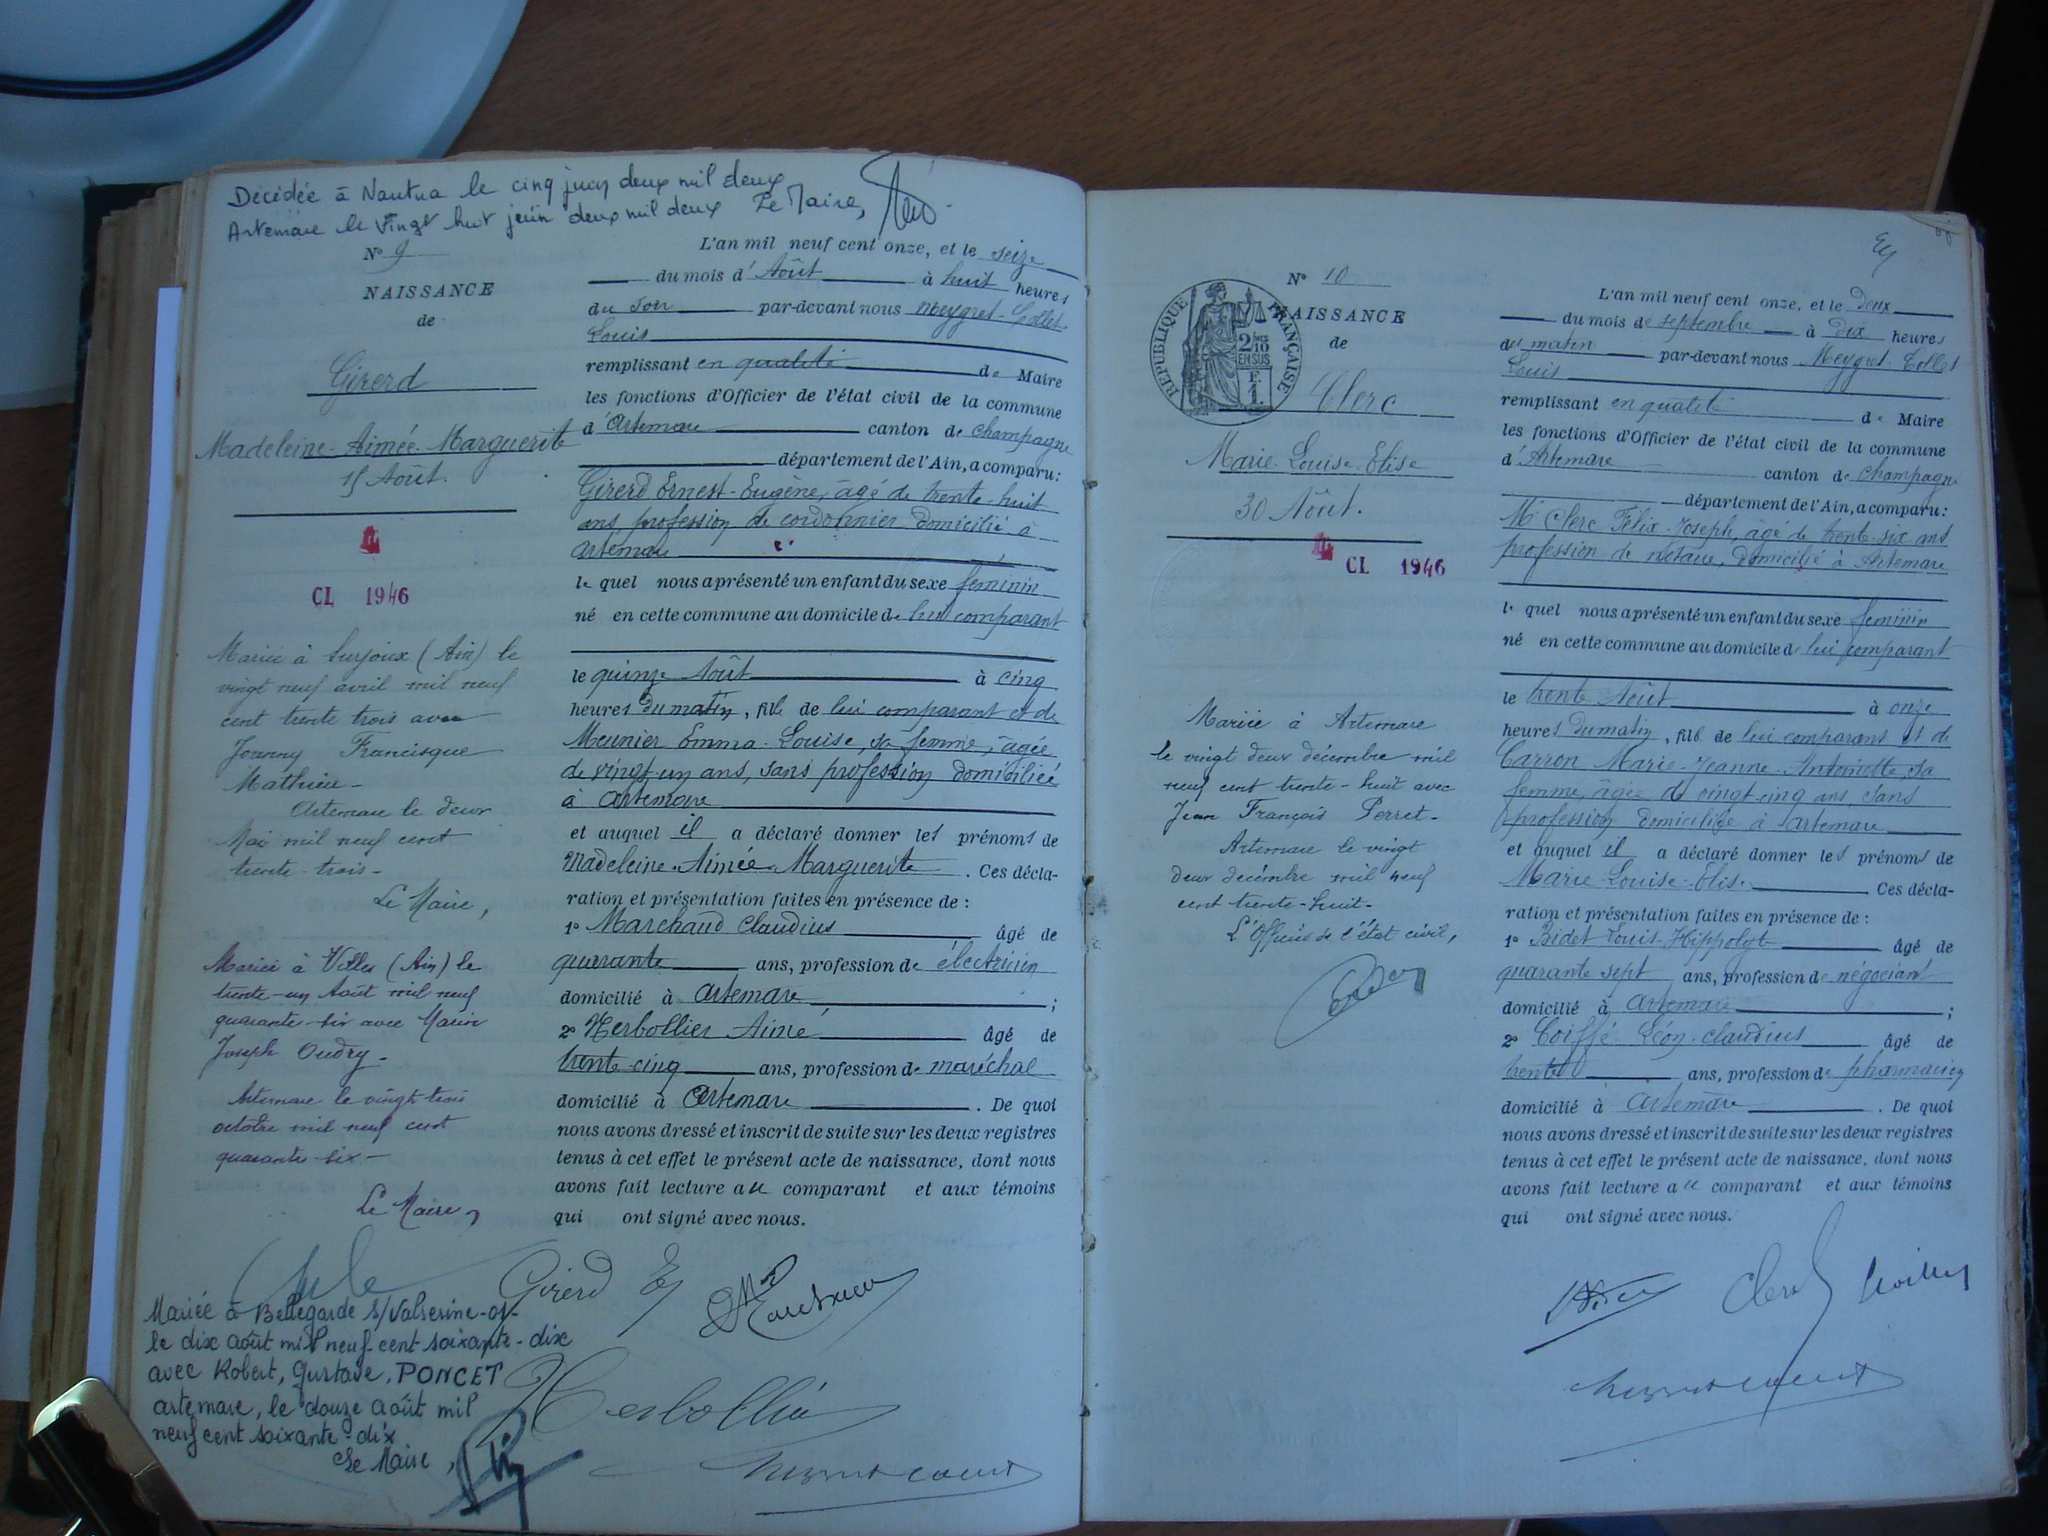 Décédée à Nantua le cinq juin deux mil deux
Artemare le vingt huit juin deux mil deux Le Maire,
N° 9
NAISSANCE
de
Girerd
Madeleine-Aimée-Marguerite
15 Août.
CL 1946
Mariée à Surjoux (Ain) le
vingt neuf avril mil neuf
cent trente trois avec
Joanny Francisque
Mathieu-
Artemare le deux
Mai mil neuf cent
trente-trois-
Le Maire,
Mariée à Villes (Ain) le
trente-un Août mil neuf
quarante-six avec Marin
Joseph Oudry-
Artemare le vingt trois
octobre mil neuf cent
quarante-six-
Le Maire,
Mariée à Bellegarde s/Valserine-01-
le dix août mil neuf-cent soixante-dix
avec Robert, Gustave, PONCET
artemare, le douze août mil
neuf cent soixante-dix
Le Maire,
L'an mil neuf cent onze, et le seize
du mois d'Août à huit heures
du soir par-devant nous Meygret-Collet
Louis
remplissant en qualité de Maire
les fonctions d'Officier de l'état civil de la commune
d'Artemare canton de Champagne
département de l'Ain, a comparu:
Girerd Ernest-Eugène, âgé de trente-huit
ans, profession de cordonnier domicilié à
Artemare
lequel nous a présenté un enfant du sexe féminin
né en cette commune au domicile de lui comparant
le quinze Août à cinq
heures du matin, fille de lui comparant et de
Meunier Emma-Louise, sa femme, âgée
de vingt-un ans, sans profession domiciliée
à Artemare
et auquel il a déclaré donner les prénoms de
Madeleine-Aimée-Marguerite. Ces décla-
ration et présentation faites en présence de :
1° Marchaud Claudius âgé de
quarante ans, profession de électricien
domicilié à Artemare ;
2° Herbollier Aimé âgé de
trente-cinq ans, profession de maréchal
domicilié à Artemare. De quoi
nous avons dressé et inscrit de suite sur les deux registres
tenus à cet effet le présent acte de naissance, dont nous
avons fait lecture au comparant et aux témoins
qui ont signé avec nous.
Girerd E
N° 10
NAISSANCE
de
REPUBLIQUE FRANÇAISE
2/10 EN SUS
F. 1.
Clerc
Marie-Louise-Elise
30 Août.
CL 1946
Mariée à Artemare
le vingt deux décembre mil
neuf cent trente-huit avec
Jean François Perret-
Artemare le vingt
deux décembre mil neuf
cent trente-huit-
L'Officier de l'état civil,
L'an mil neuf cent onze, et le deux
du mois de septembre à dix heures
du matin par-devant nous Meygret-Collet
Louis
remplissant en qualité de Maire
les fonctions d'Officier de l'état civil de la commune
d'Artemare canton de Champagne
département de l'Ain, a comparu:
Mr Clerc Félix-Joseph, âgé de trente-six ans
profession de notaire, domicilié à Artemare
lequel nous a présenté un enfant du sexe féminin
né en cette commune au domicile de lui comparant
le trente Août à onze
heures du matin, fille de lui comparant et de
Carron Marie-Jeanne-Antoinette, sa
femme, âgée de vingt-cinq ans, sans
profession domiciliée à Artemare
et auquel il a déclaré donner les prénoms de
Marie-Louise-Elise Ces décla-
ration et présentation faites en présence de :
1° Bidet Louis-Hippolyte âgé de
quarante sept ans, profession de négociant
domicilié à Artemare ;
2° Coiffé Léon-Claudius âgé de
trente ans, profession de pharmacien
domicilié à Artemare. De quoi
nous avons dressé et inscrit de suite sur les deux registres
tenus à cet effet le présent acte de naissance, dont nous
avons fait lecture au comparant et aux témoins
qui ont signé avec nous.
Clerc